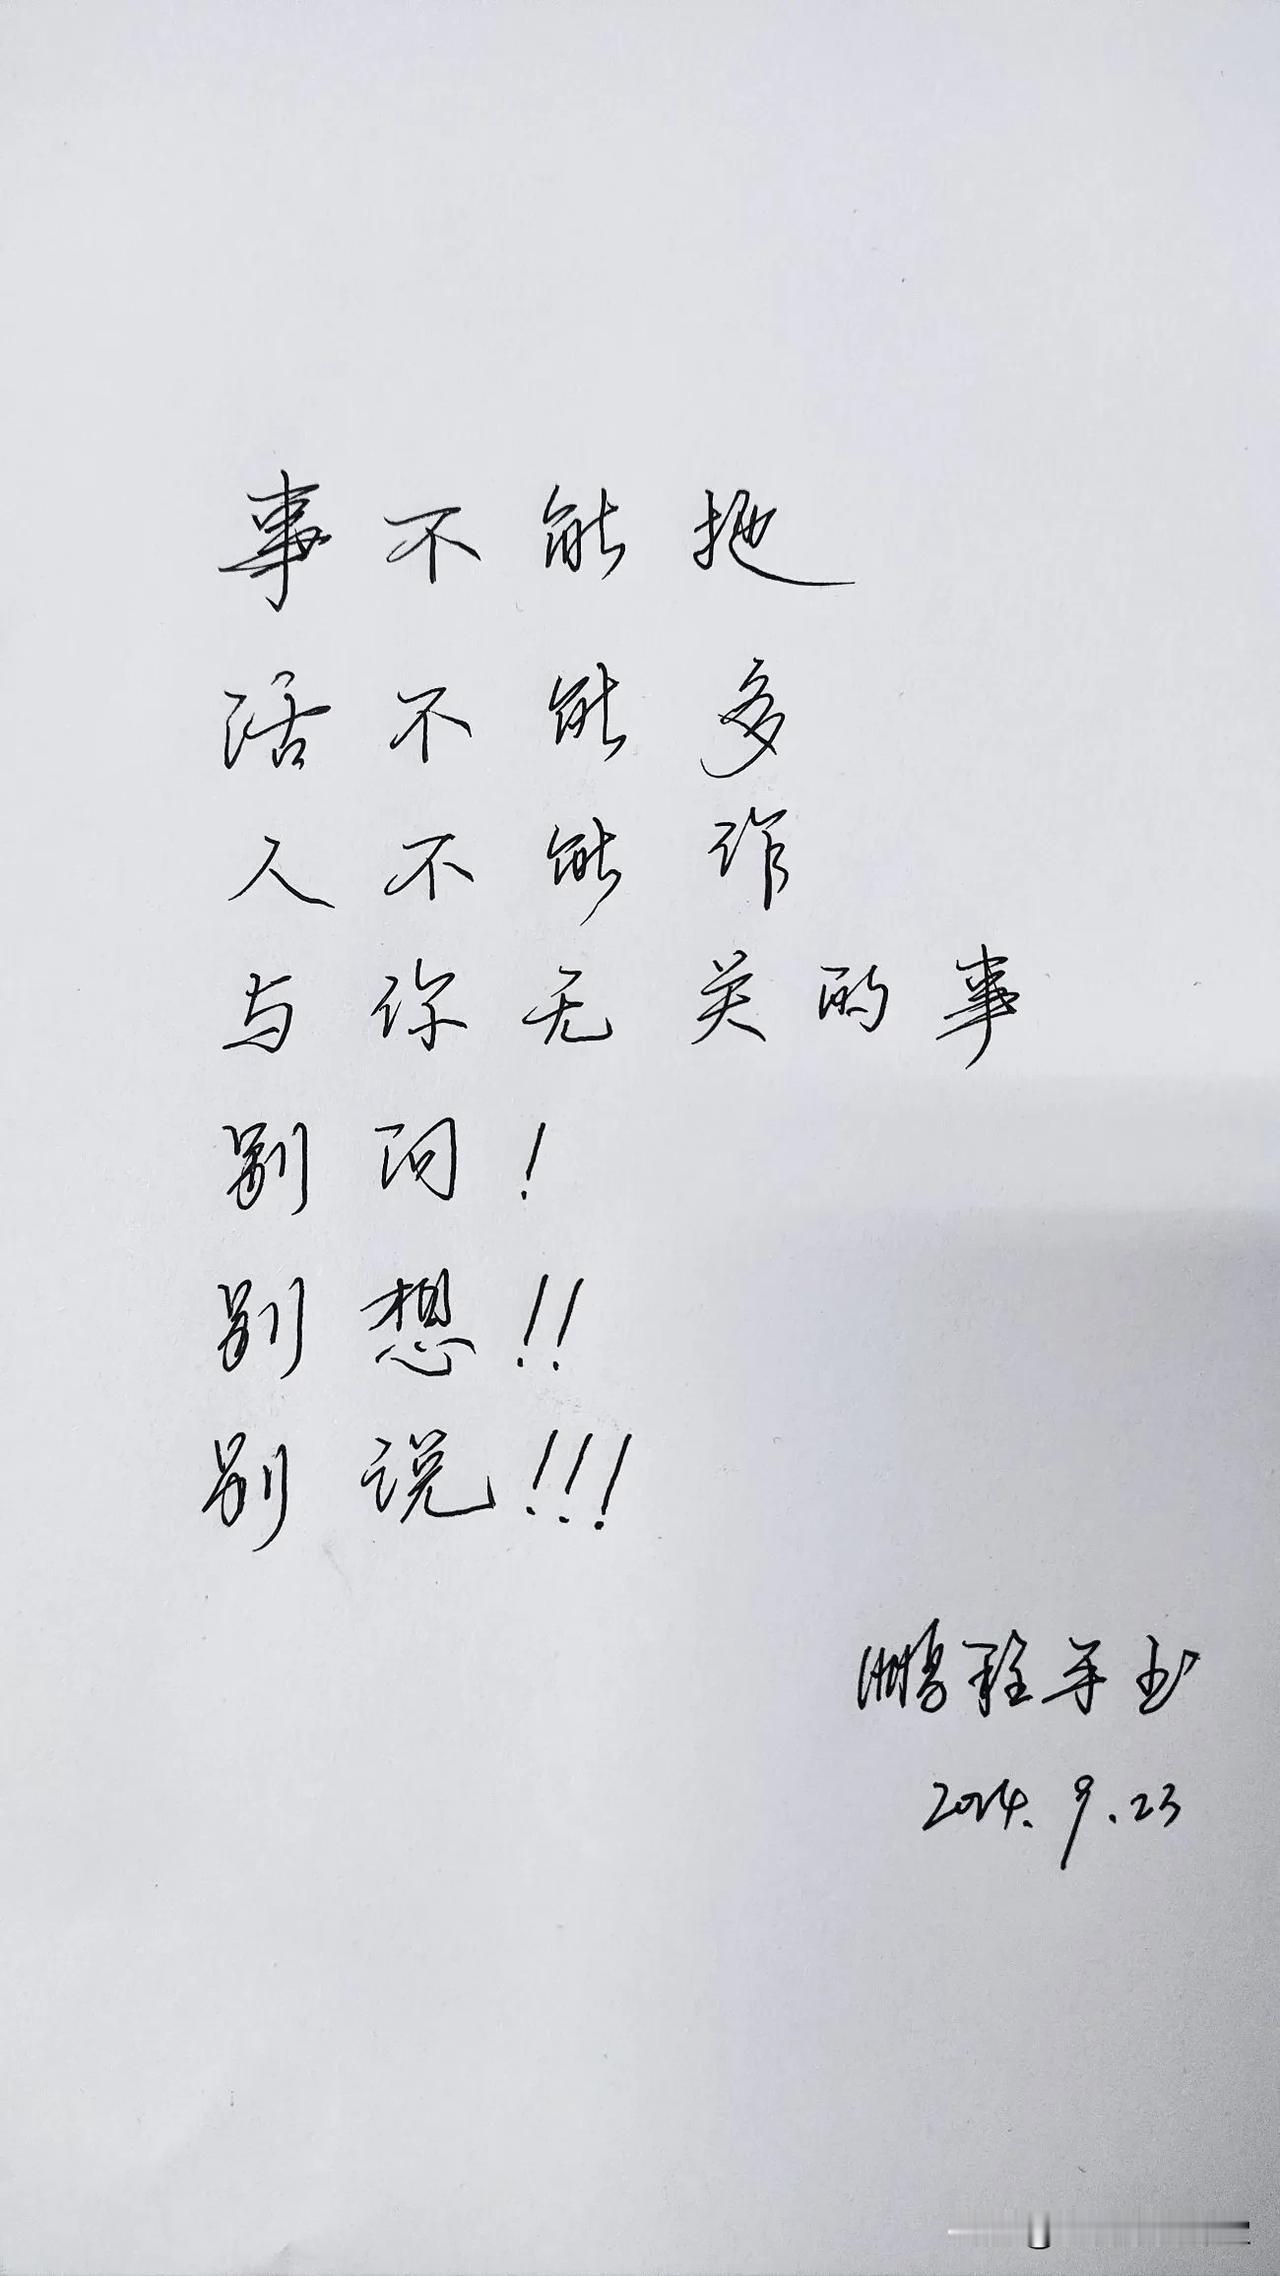 事不能拖
话不能多
人不能作
与你无关的事
别问!
别想!!
别说!!!
鹏程手书
2024.9.23